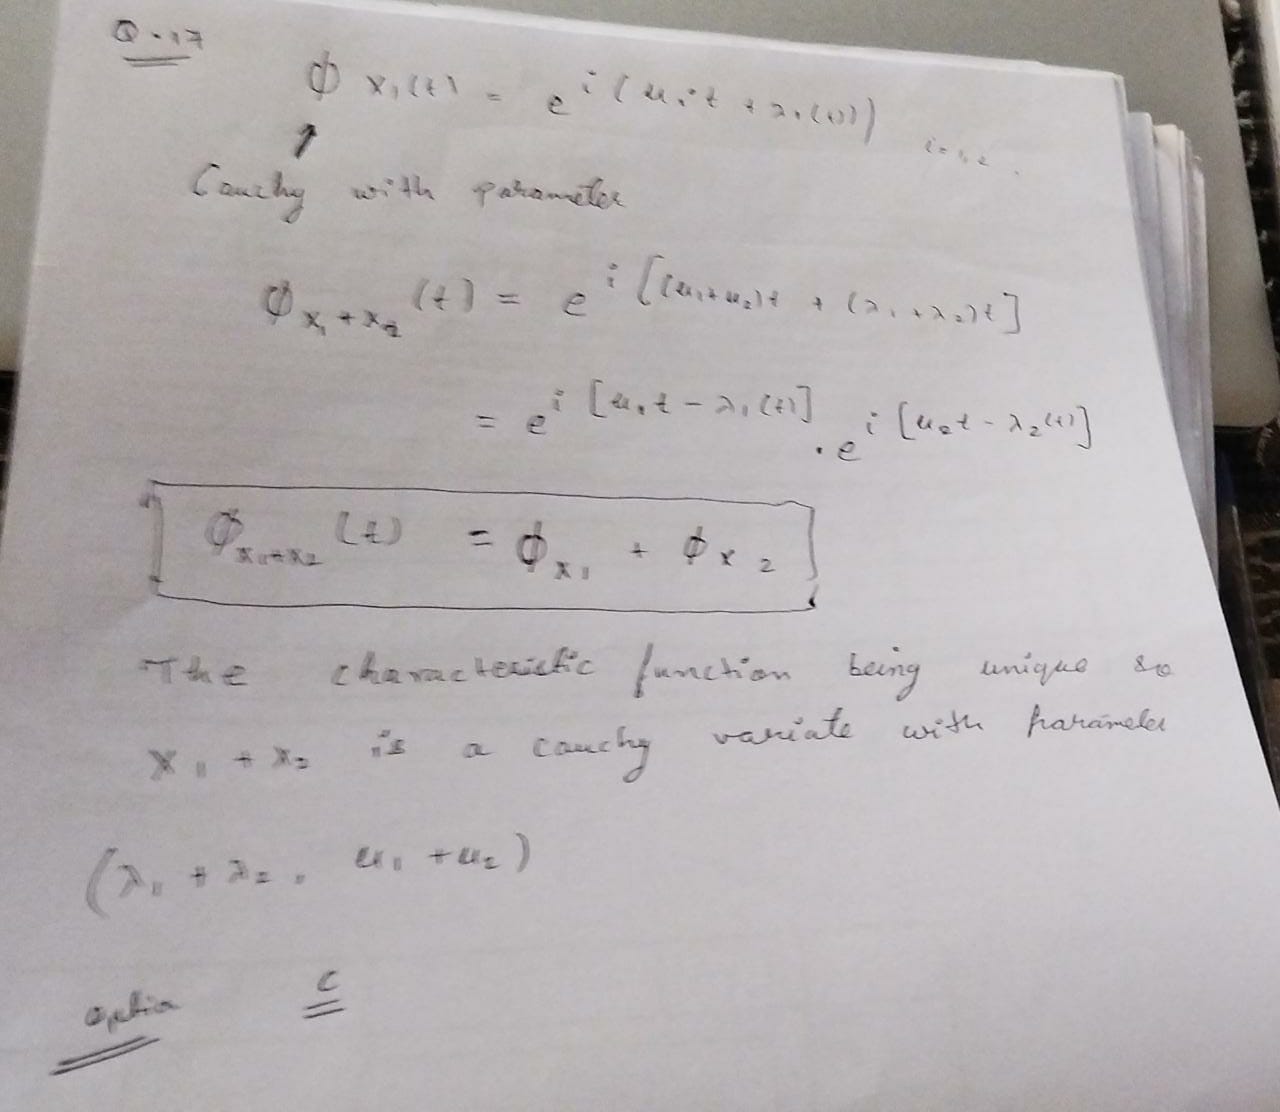 Q.17
ϕ x₁(t) = e^i(u₁t + λ₁(t)) i=1,2.
Cauchy with parameter
ϕ x₁+x₂ (t) = e^i[(u₁+u₂)t + (λ₁+λ₂)t]
= e^i[u₁t - λ₁(t)] . e^i[u₂t - λ₂(t)]
ϕ x₁+x₂ (t) = ϕ x₁ + ϕ x₂
The characteristic function being unique so
x₁ + x₂ is a cauchy variate with parameter
(λ₁ + λ₂, u₁ + u₂)
option C